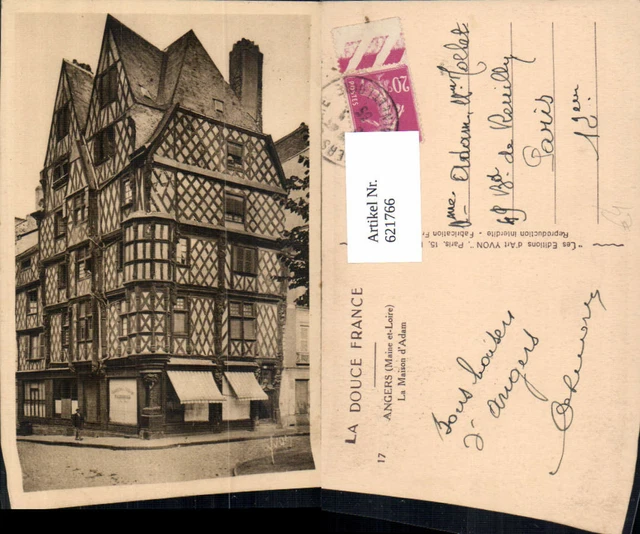 LA DOUCE FRANCE
17 ANGERS (Maine et-Loire)
La Maison d'Adam
Bons baisers
d'Angers
20c
POSTES
Mme Adam,
49 Bd de Reuilly
Paris
12 em
"Les Editions d'Art YVON", Paris, 15,
Reproduction interdite - Fabrication
Artikel Nr.
621766